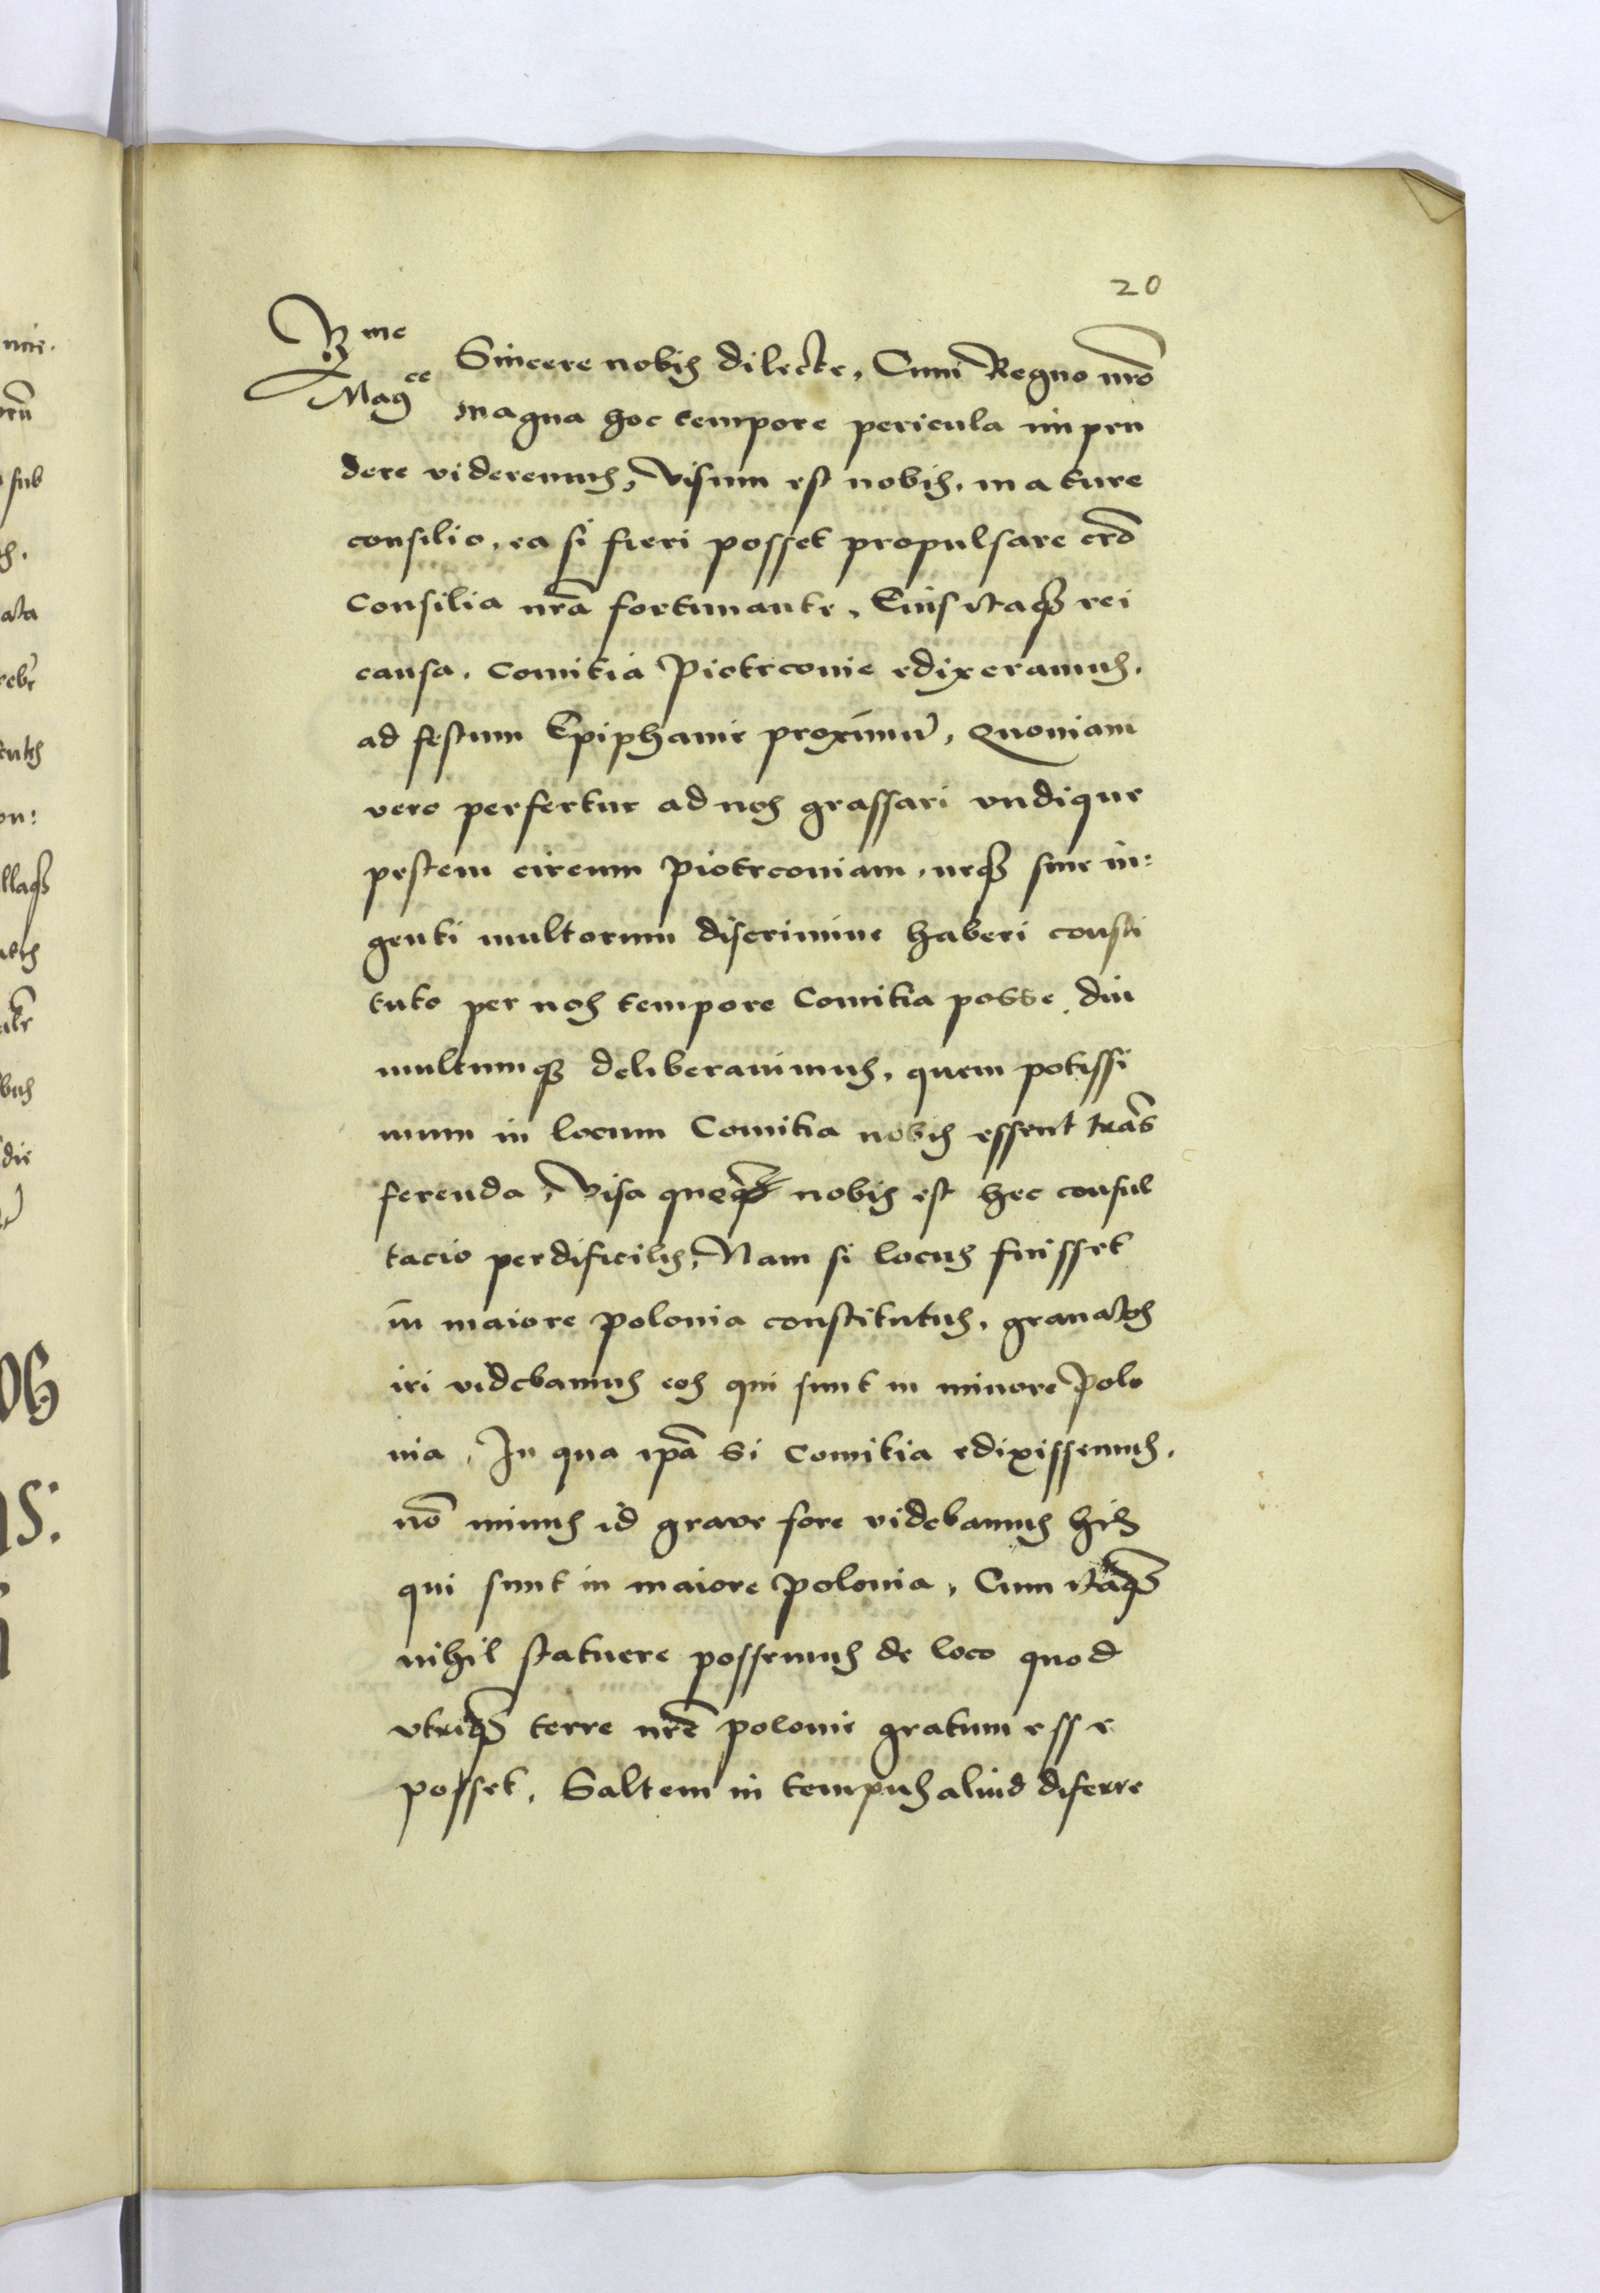 20
R me Sincere nobis dilecte, Cum Regno nr̃o
Mag ce magna hoc tempore pericula impen
dere videremus, Visum est nobis, mature
consilio, ea si fieri posset propulsare
Consilia nr̃a fortunante, Eius itaq3 rei
causa, Comitia Piotrconie edixeramus,
ad festum Epiphanie proximũ, Quoniam
vero perfertur ad nos grassari vndique
pestem circum Piotrconiam, neq3 sine in:
genti multorum discrimine haberi consti
tuto per nos tempore Comitia posse, diu
multumq3 deliberauimus, quem potissi
mum in locum Comitia nobis essent trãs
ferenda, Visa nobis est hec consul
tacio perdificilis, Nam si locus fuisset
in maiore polonia constitutus, grauatos
iri videbamus eos qui sunt in minore Polo
nia, In qua ip̃a Si Comitia edixissemus,
nõ minus id graue fore videbamus his
qui sunt in maiore Polonia, Cum itaq3
nihil statuere possemus de loco quod
vtriq3 terre nr̃e polonie gratum esse
posset, Saltem in tempus aliud diferre